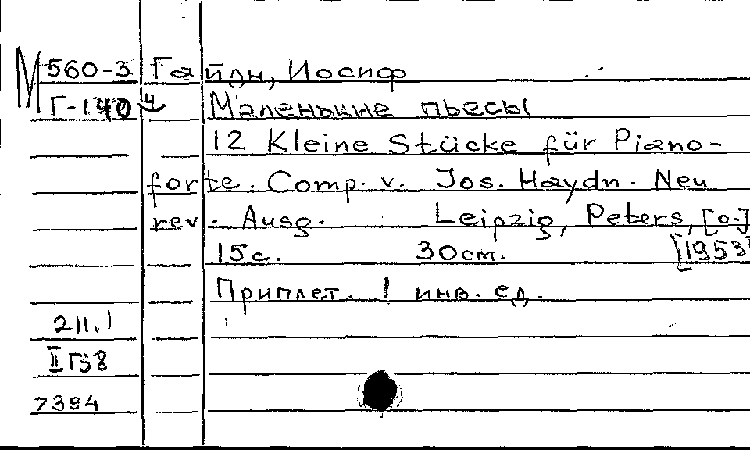 М 560-3 Гайдн, Иосиф
Г-140 Маленькие пьесы
12 Kleine Stücke für Piano-
forte. Comp. v. Jos. Haydn. Neu
rev. Ausg. Leipzig, Peters, [о.J]
15с. 30см. [1953]
Приплет. 1 инв. ед.
211.1
7384